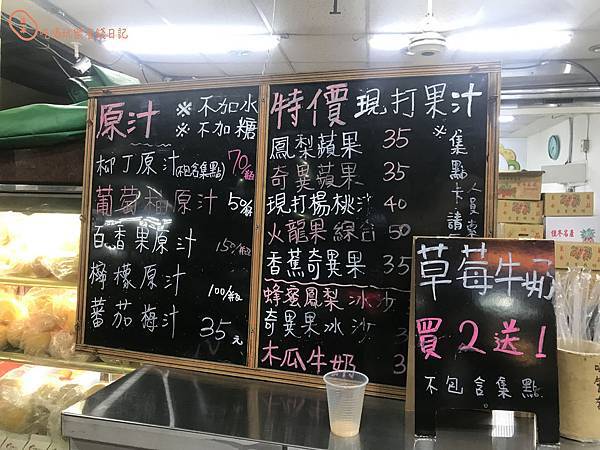 原汁 ※不加水
※不加糖
柳丁原汁(不包含集點) 70/瓶
葡萄柚原汁 5%
百香果原汁 150/瓶
檸檬原汁 100/瓶
蕃茄梅汁 35元
特價現打果汁
鳳梨蘋果 35
奇異蘋果 35
現打楊桃汁 40
火龍果綜合 50
香蕉奇異果 35
蜂蜜鳳梨冰沙
奇異果冰沙
木瓜牛奶 3
※集點卡請
草莓牛奶
買2送1
不包含集點